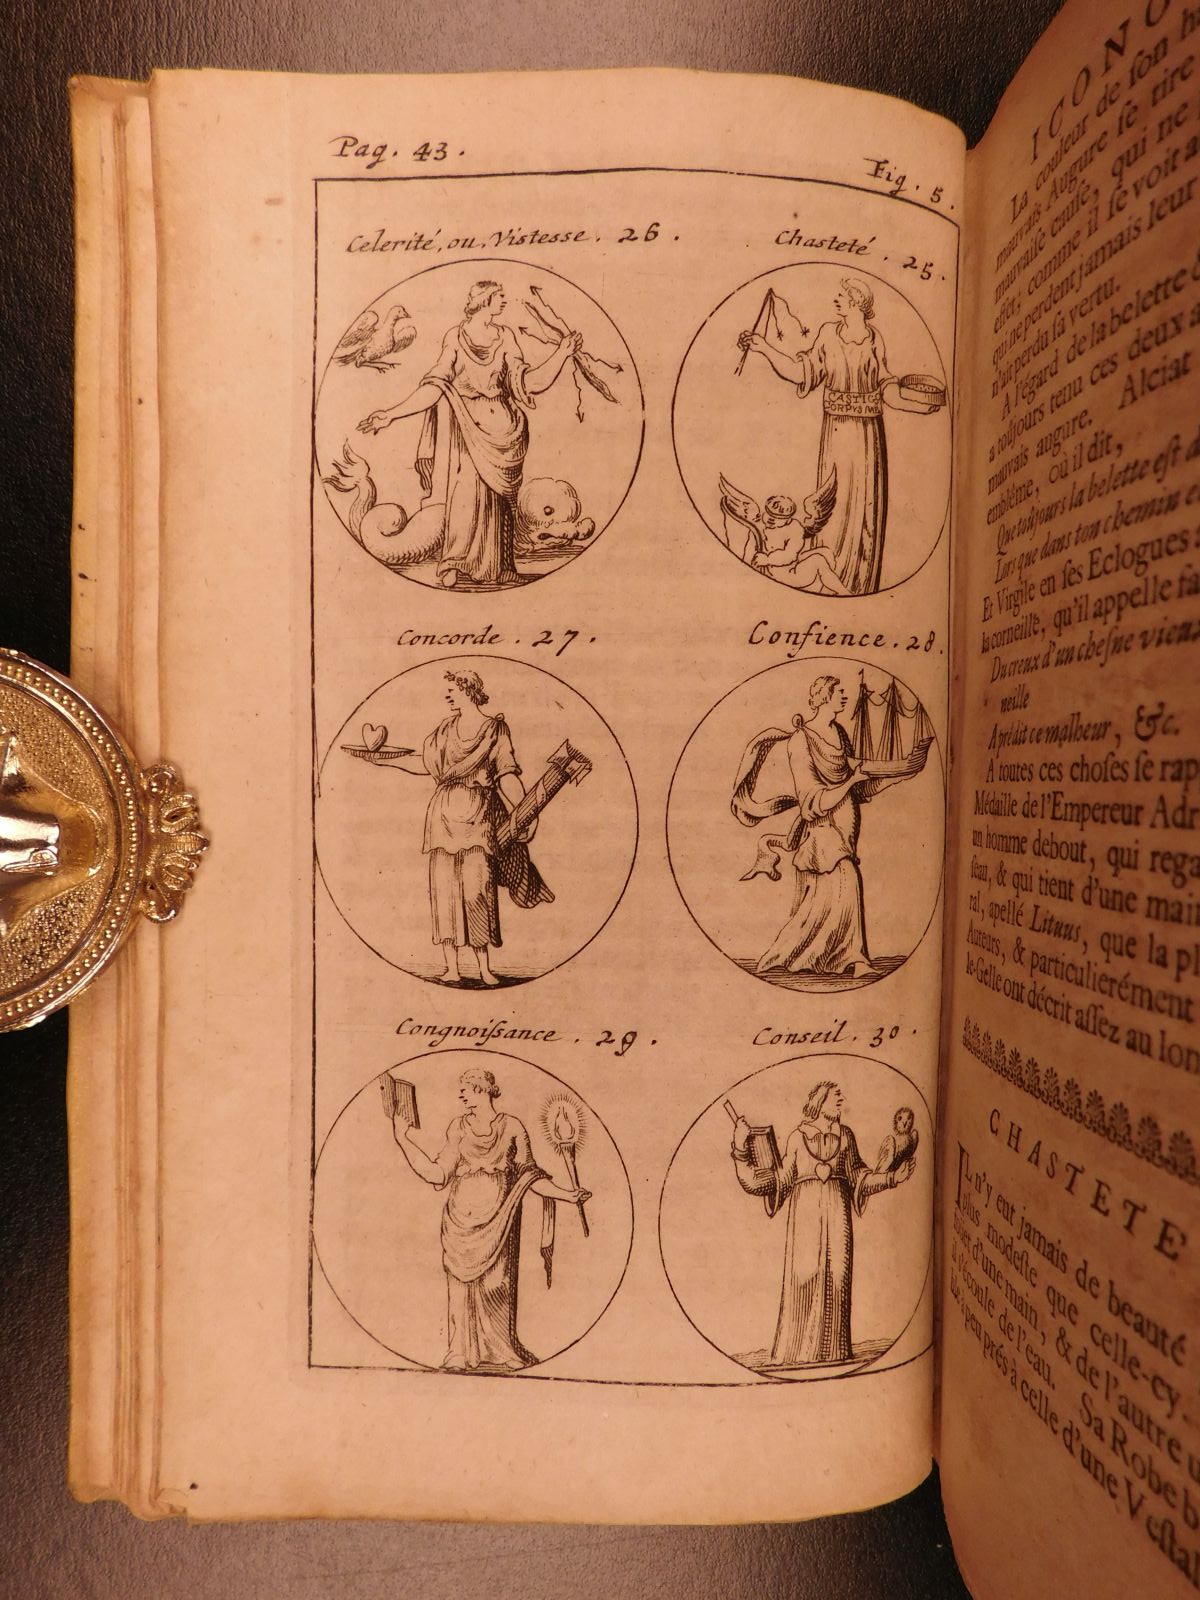 Pag. 43.
Fig. 5.
Celerité, ou, Vistesse. 26.
Chasteté. 25.
CASTIGO
CORPUS ME
Concorde. 27.
Confience. 28.
Congnoiſsance. 29.
Conseil. 30.
ICONO
La couleur de ſon
mauvais Augure ſe tire
mauvaiſe cauſe, qui ne
effet; comme il ſe voit a
qui ne perdent jamais leur
n'ait perdu ſa vertu.
A l'égard de la belette &
a toûjours tenu ces deux a
mauvais augure. Alciat
emblême, où il dit,
Que toûjours la belette eſt
Lors que dans ton chemin
Et Virgile en ſes Eclogues
la corneille, qu'il appelle
Du creux d'un cheſne vieux
neille
A prédit ce malheur, &c.
A toutes ces choſes ſe rap
Médaille de l'Empereur Adr
un homme debout, qui rega
ſeau, & qui tient d'une main
ral, apellé Lituus, que la pl
Auteurs, & particuliérement
le-Gelle ont décrit aſſez au lon
CHASTETE
IL n'y eut jamais de beauté
plus modeſte que celle-cy
d'une main, & de l'autre u
il s'écoule de l'eau. Sa Robe b
ble à peu prés à celle d'une Veſtal